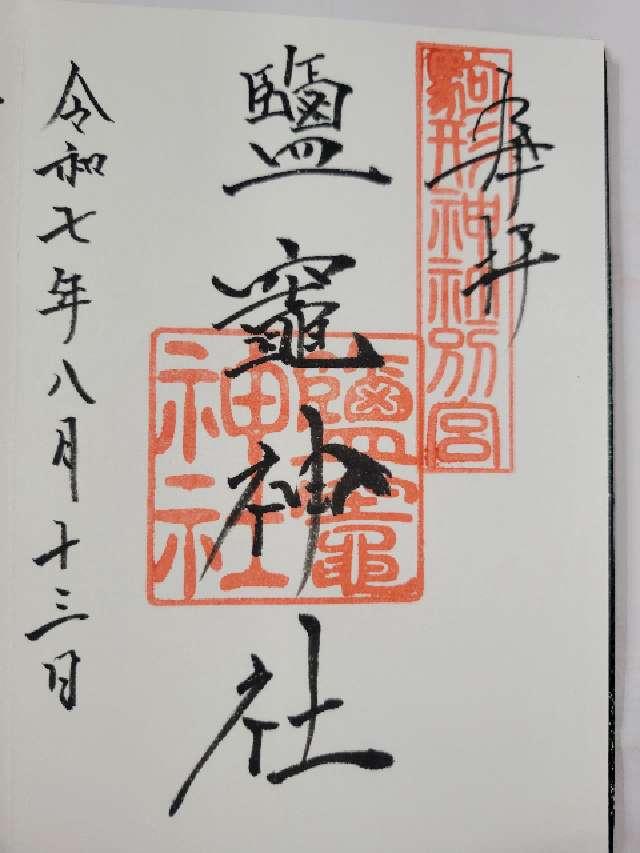 奉拝
駒形神社別宮
鹽竈神社
鹽竈神社
令和七年八月十三日